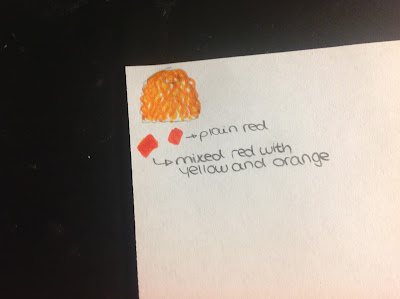 plain red
mixed red with
yellow and orange